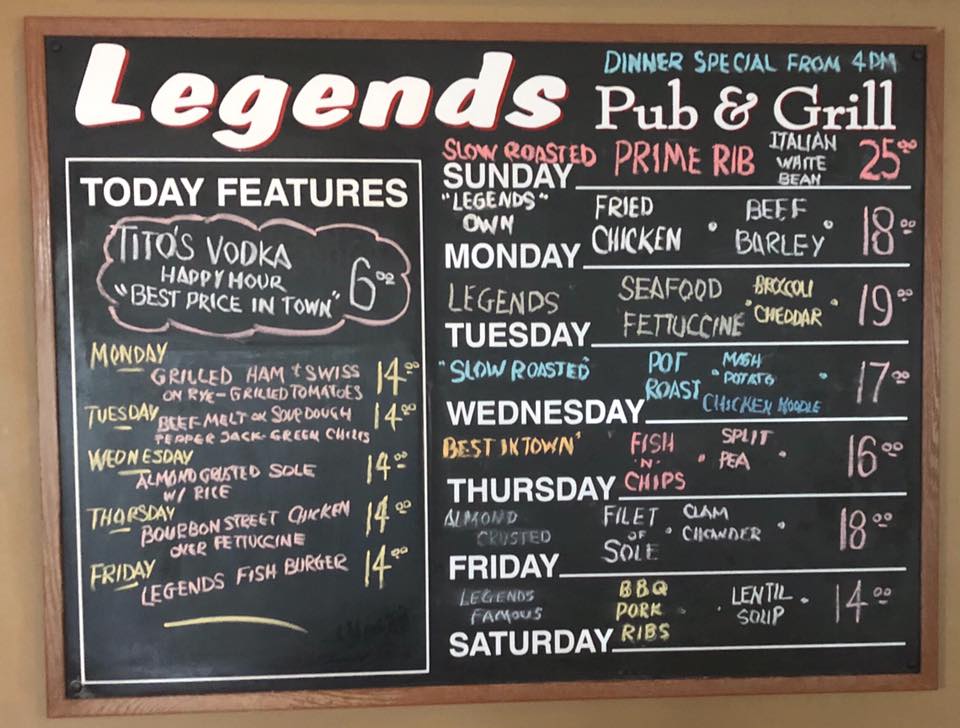 Legends
DINNER SPECIAL FROM 4PM
Pub & Grill
TODAY FEATURES
TITO'S VODKA
HAPPY HOUR
"BEST PRICE IN TOWN" 6.00
MONDAY
GRILLED HAM & SWISS
ON RYE-GRILLED TOMATOES 14.00
TUESDAY BEEF MELT ON SOURDOUGH 14.00
PEPPER JACK-GREEN CHILIS
WEDNESDAY
ALMOND CRUSTED SOLE 14.00
W/ RICE
THORSDAY
BOURBON STREET CHICKEN 14.00
OVER FETTUCCINE
FRIDAY
LEGENDS FISH BURGER 14.00
SLOW ROASTED PRIME RIB ITALIAN WHITE BEAN 25.00
SUNDAY
"LEGENDS" OWN FRIED CHICKEN • BEEF BARLEY • 18.00
MONDAY
LEGENDS SEAFOOD FETTUCCINE • BROCCOLI CHEDDAR • 19.00
TUESDAY
"SLOW ROASTED" POT ROAST • MASH POTATO • CHICKEN NOODLE 17.00
WEDNESDAY
BEST IN TOWN' FISH 'N' CHIPS • SPLIT PEA • 16.00
THURSDAY
ALMOND CRUSTED FILET OF SOLE • CLAM CHOWDER • 18.00
FRIDAY
LEGENDS FAMOUS BBQ PORK RIBS • LENTIL SOUP • 14.00
SATURDAY